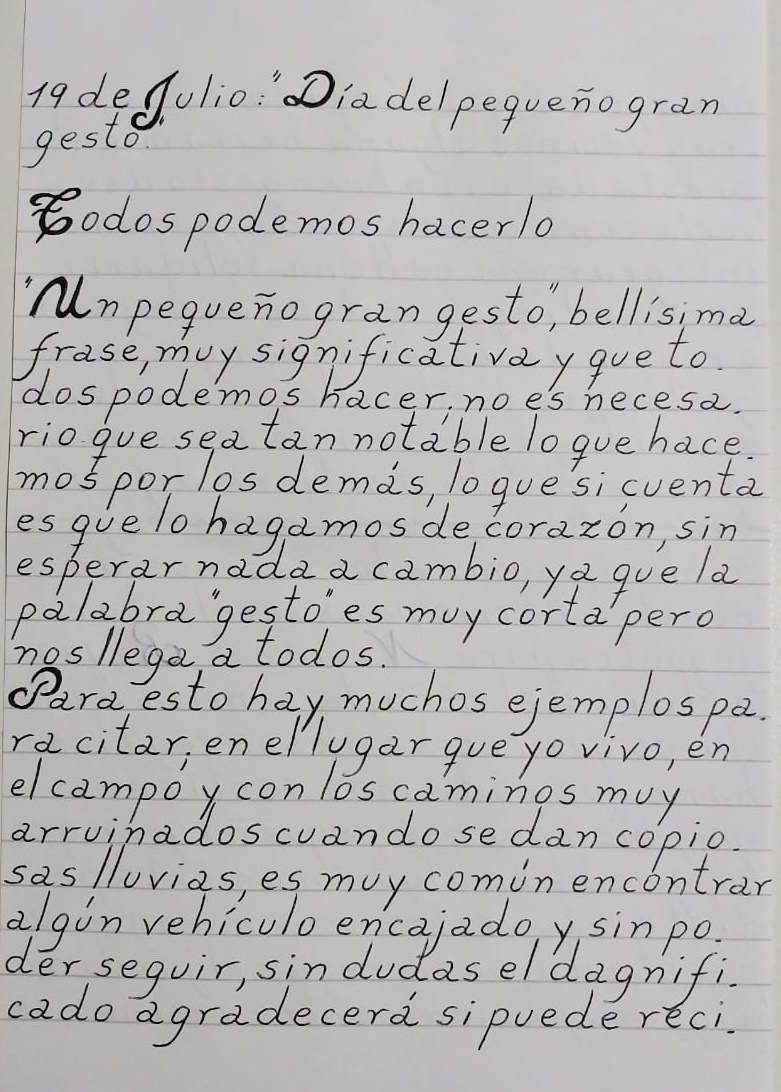 19 de Julio: "Día del pequeño gran
gesto.
Todos podemos hacerlo
"Un pequeño gran gesto", bellísima
frase, muy significativa y que to.
dos podemos hacer; no es necesa.
rio que sea tan notable lo que hace.
mos por los demás, lo que si cuenta
es que lo hagamos de corazón, sin
esperar nada a cambio, ya que la
palabra "gesto" es muy corta pero
nos llega a todos.
Para esto hay muchos ejemplos pa.
ra citar; en el lugar que yo vivo, en
el campo y con los caminos muy
arruinados cuando se dan copio.
sas lluvias, es muy común encontrar
algún vehículo encajado y sin po.
der seguir, sin dudas el dagnifi.
cado agradecerá si puede reci.